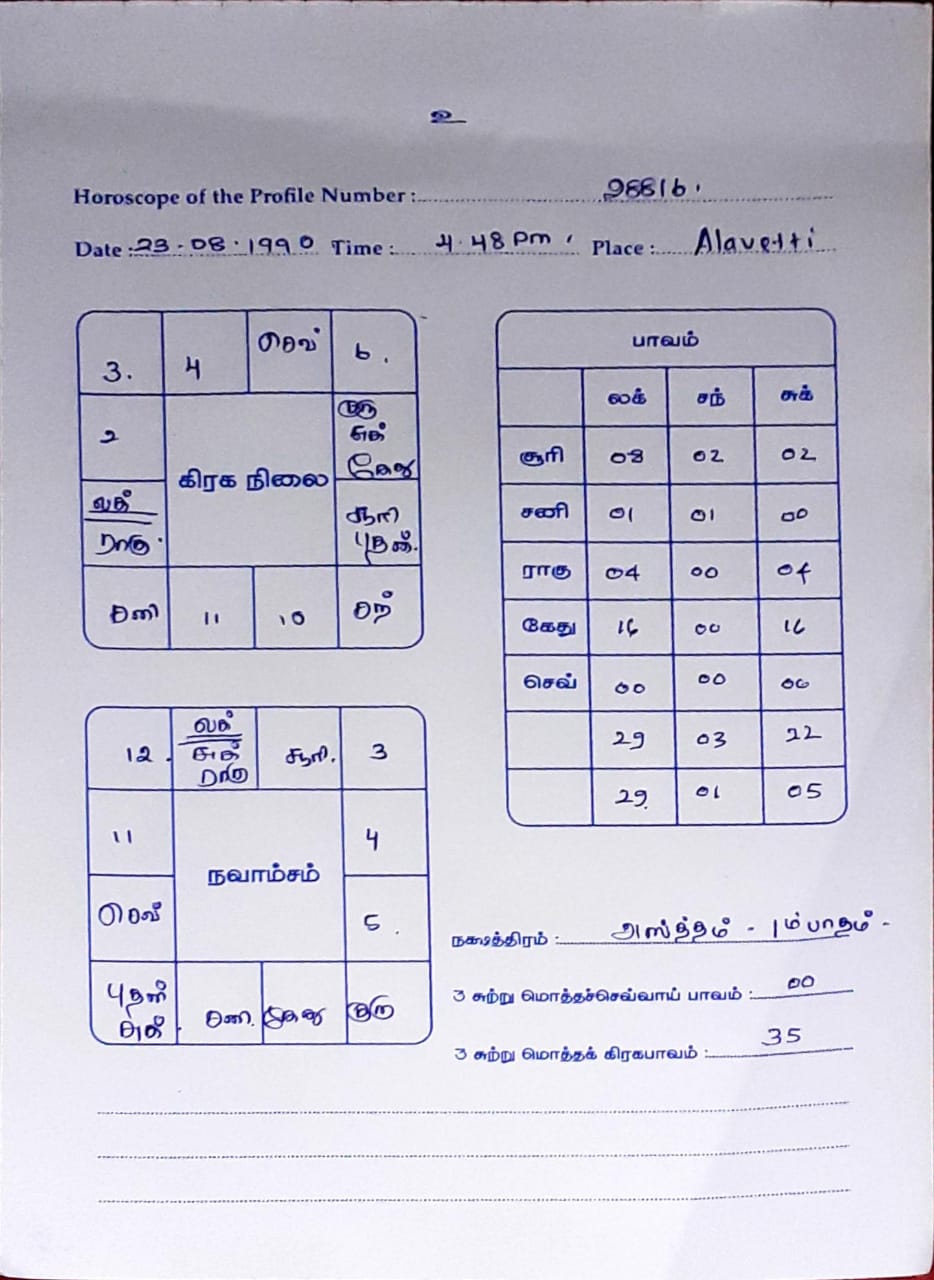 உ
Horoscope of the Profile Number : 98816.
Date : 23.08.1990 Time : 4.48 Pm, Place : Alavetti
3. 4 செவ் 6.
2 கிரக நிலை குரு சுக் கேது
லக் ராகு. சூரி புதன்.
சனி 11 10 சந்
பாவம்
லக் சந் சுக்
சூரி 08 02 02
சனி 01 01 00
ராகு 04 00 04
கேது 16 00 16
செவ் 00 00 00
29 03 22
29 01 05
12. லக் சுக் ராகு சூரி. 3
11 நவாம்சம் 4
செவ் 5.
புதன் சனி. கேது குரு
நட்சத்திரம் : அஸ்த்தம் - 1ம் பாதம் -
3 சுற்று மொத்தச்செவ்வாய் பாவம் : 00
3 சுற்று மொத்தக் கிரகபாவம் : 35